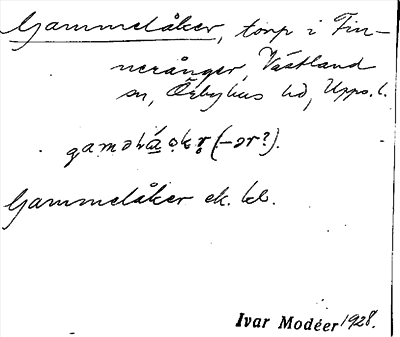 Gammelåker, torp i Fin-
neränger, Västland
sn, Örbyhus hd, Upps. l.
gaməlå̀ṣkr̥ (-ər?).
Gammelåker ek. bl.
Ivar Modéer 1928.